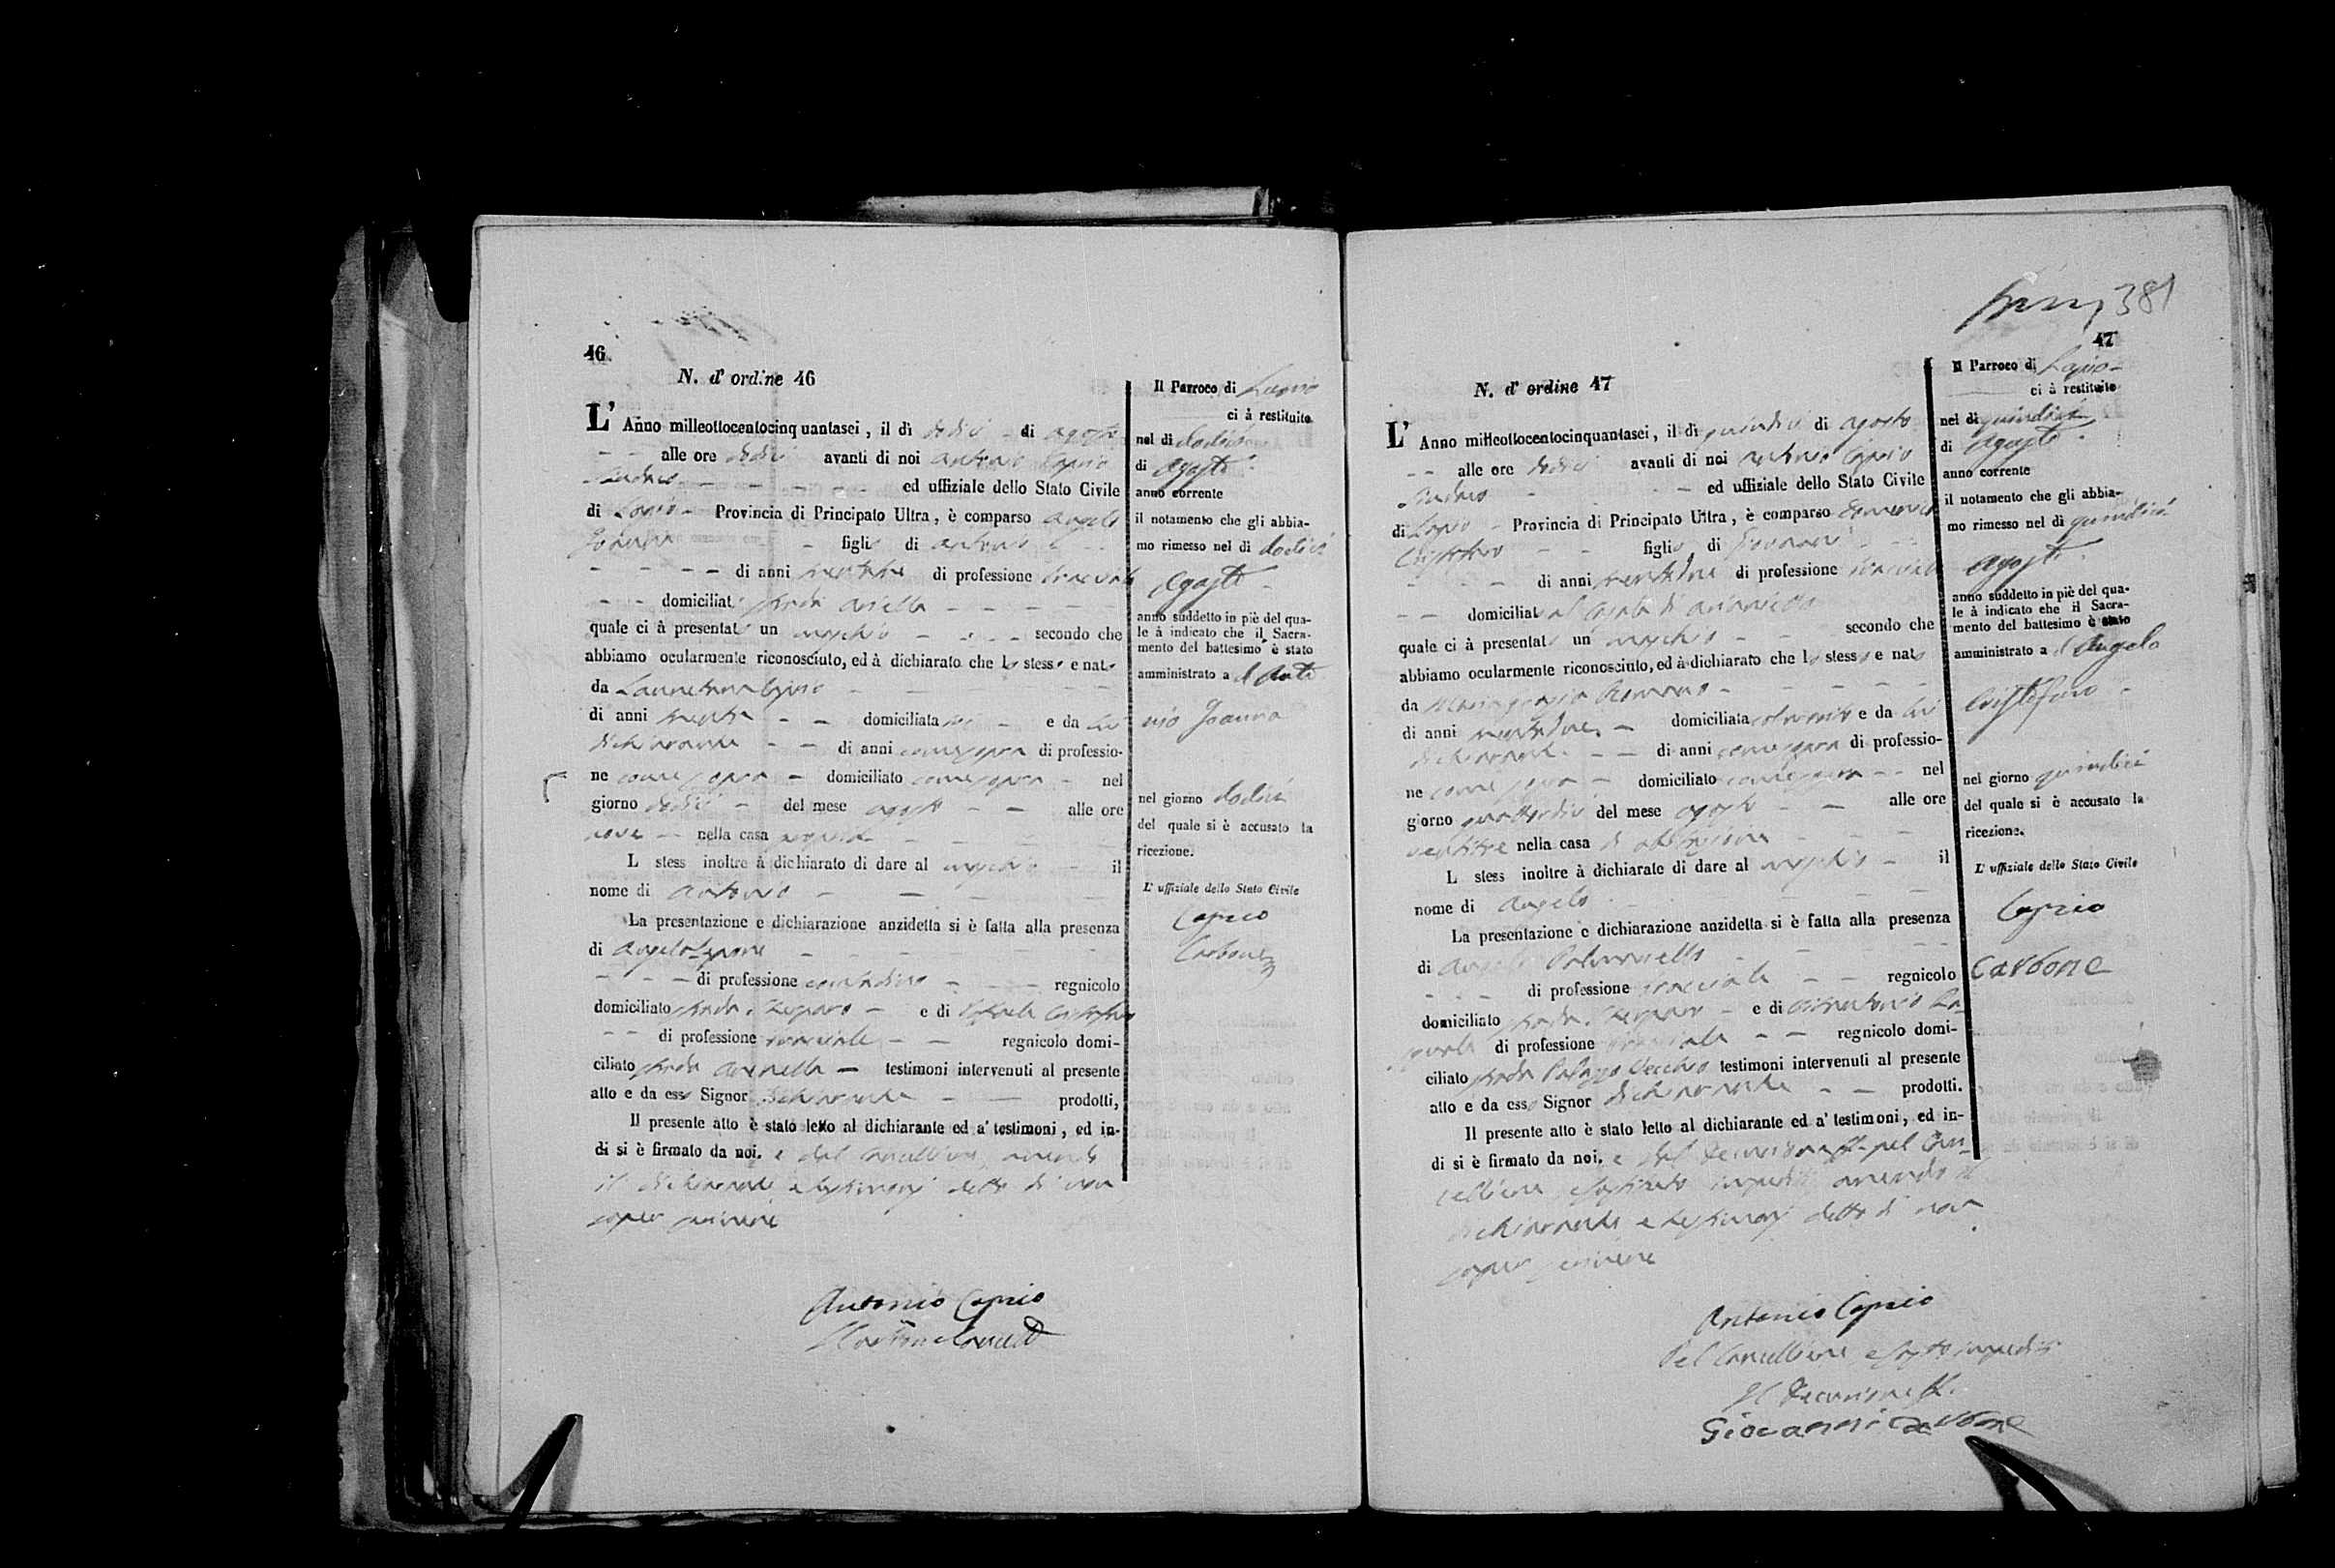 46
N. d' ordine 46
L' Anno milleottocentocinquantasei, il dì dodici di agosto
alle ore dodici avanti di noi Antonio Caprio
Sindaco ed uffiziale dello Stato Civile
di Lapio Provincia di Principato Ultra, è comparso Angelo
Joanna figlio di Antonio
di anni di professione bracciale
domiciliato strada
quale ci à presentato un maschio secondo che
abbiamo ocularmente riconosciuto, ed à dichiarato che lo stesso e nato
da
di anni trenta domiciliata ivi e da lui
dichiarante di anni come sopra di professio-
ne come sopra domiciliato come sopra nel
giorno dodici del mese agosto alle ore
nove nella casa
L stess inoltre à dichiarato di dare al maschio il
nome di Antonio
La presentazione e dichiarazione anzidetta si è fatta alla presenza
di Angelo
di professione contadino regnicolo
domiciliato strada e di Cristofaro
di professione bracciale regnicolo domi-
ciliato strada testimoni intervenuti al presente
atto e da esso Signor dichiarante prodotti,
Il presente atto è stato letto al dichiarante ed a' testimoni, ed in-
di si è firmato da noi. e dal cancelliere, avendo
il dichiarante e testimonj detto di non
saper scrivere
Antonio Caprio
Il Parroco di Lapio
ci à restituito
nel dì dodici
di Agosto
anno corrente
il notamento che gli abbia-
mo rimesso nel dì dodici
Agosto
anno suddetto in piè del qua-
le à indicato che il Sacra-
mento del battesimo è stato
amministrato a d Anto
nio Joanna
nel giorno dodici
del quale si è accusato la
ricezione.
L' uffiziale dello Stato Civile
Caprio
Carbone
381
47
N. d' ordine 47
L' Anno milleottocentocinquantasei, il dì quindici di agosto
alle ore dodici avanti di noi Antonio Caprio
Sindaco ed uffiziale dello Stato Civile
di Lapio Provincia di Principato Ultra, è comparso Domenico
Cristofaro figlio di Giovanni
di anni di professione bracciale
domiciliato al
quale ci à presentato un maschio secondo che
abbiamo ocularmente riconosciuto, ed à dichiarato che lo stesso e nato
da Mariagrazia Romano
di anni domiciliata e da lui
dichiarante di anni come sopra di professio-
ne come sopra domiciliato come sopra nel
giorno quattordici del mese agosto alle ore
ventitre nella casa di abitazione
L stess inoltre à dichiarato di dare al maschio il
nome di Angelo
La presentazione e dichiarazione anzidetta si è fatta alla presenza
di Angelo
di professione bracciale regnicolo
domiciliato strada e di
di professione bracciale regnicolo domi-
ciliato strada Palazzo Vecchio testimoni intervenuti al presente
atto e da esso Signor dichiarante prodotti.
Il presente atto è stato letto al dichiarante ed a' testimoni, ed in-
di si è firmato da noi. e dal Decurione pel Can-
celliere e sostituto impediti avendo il
dichiarante e testimonj detto di non
saper scrivere
Antonio Caprio
Pel Cancelliere e sostituto impediti
Il Decurione
Giovanni Carbone
Il Parroco di Lapio
ci à restituito
nel dì quindici
di Agosto
anno corrente
il notamento che gli abbia-
mo rimesso nel dì quindici
Agosto
anno suddetto in piè del qua-
le à indicato che il Sacra-
mento del battesimo è stato
amministrato a d Angelo
Cristofaro
nel giorno quindici
del quale si è accusato la
ricezione.
L' uffiziale dello Stato Civile
Caprio
Carbone